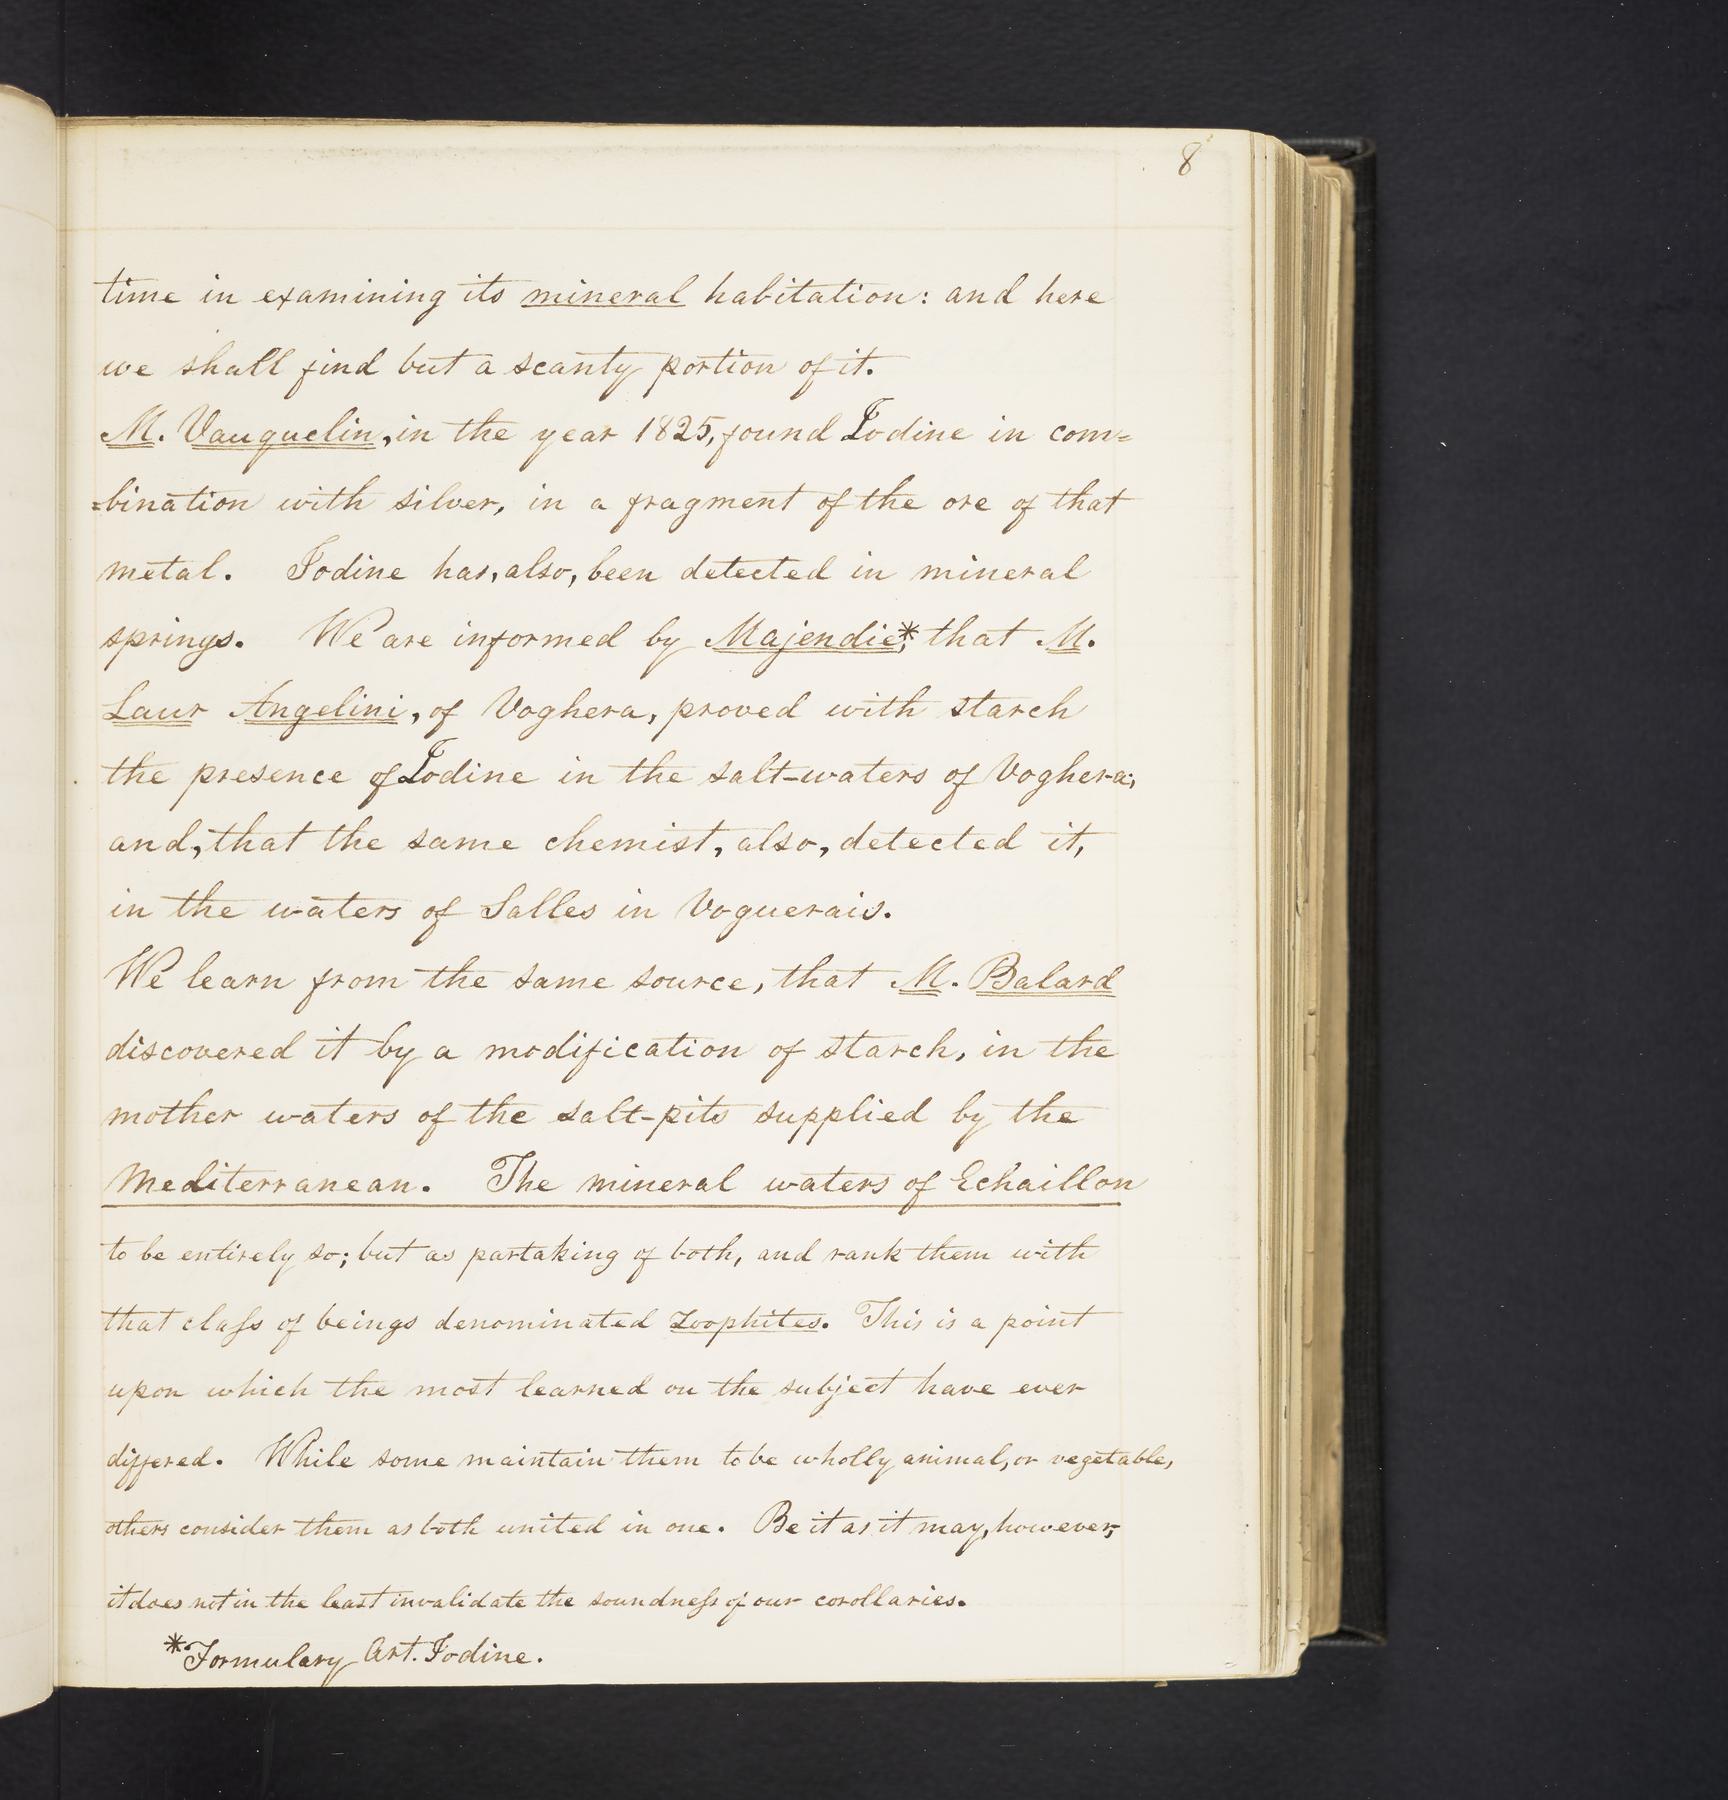 8
time in examining its mineral habitation: and here
we shall find but a scanty portion of it.
M. Vauquelin, in the year 1825, found Iodine in com=
=bination with silver, in a fragment of the ore of that
metal. Iodine has, also, been detected in mineral
springs. We are informed by Majendie*, that M.
Laur Angelini, of Voghera, proved with starch
the presence of Iodine in the salt-waters of Voghera;
and, that the same chemist, also, detected it,
in the waters of Salles in Voguerais.
We learn from the same source, that M. Balard
discovered it by a modification of starch, in the
mother waters of the salt-pits supplied by the
Mediterranean. The mineral waters of Echaillon
to be entirely so; but as partaking of both, and rank them with
that claſs of beings denominated zoophites. This is a point
upon which the most learned on the subject have ever
differed. While some maintain them to be wholly animal, or vegetable,
others consider them as both united in one. Be it as it may, however,
it does not in the least invalidate the soundneſs of our corollaries.
*Formulary Art. Iodine.